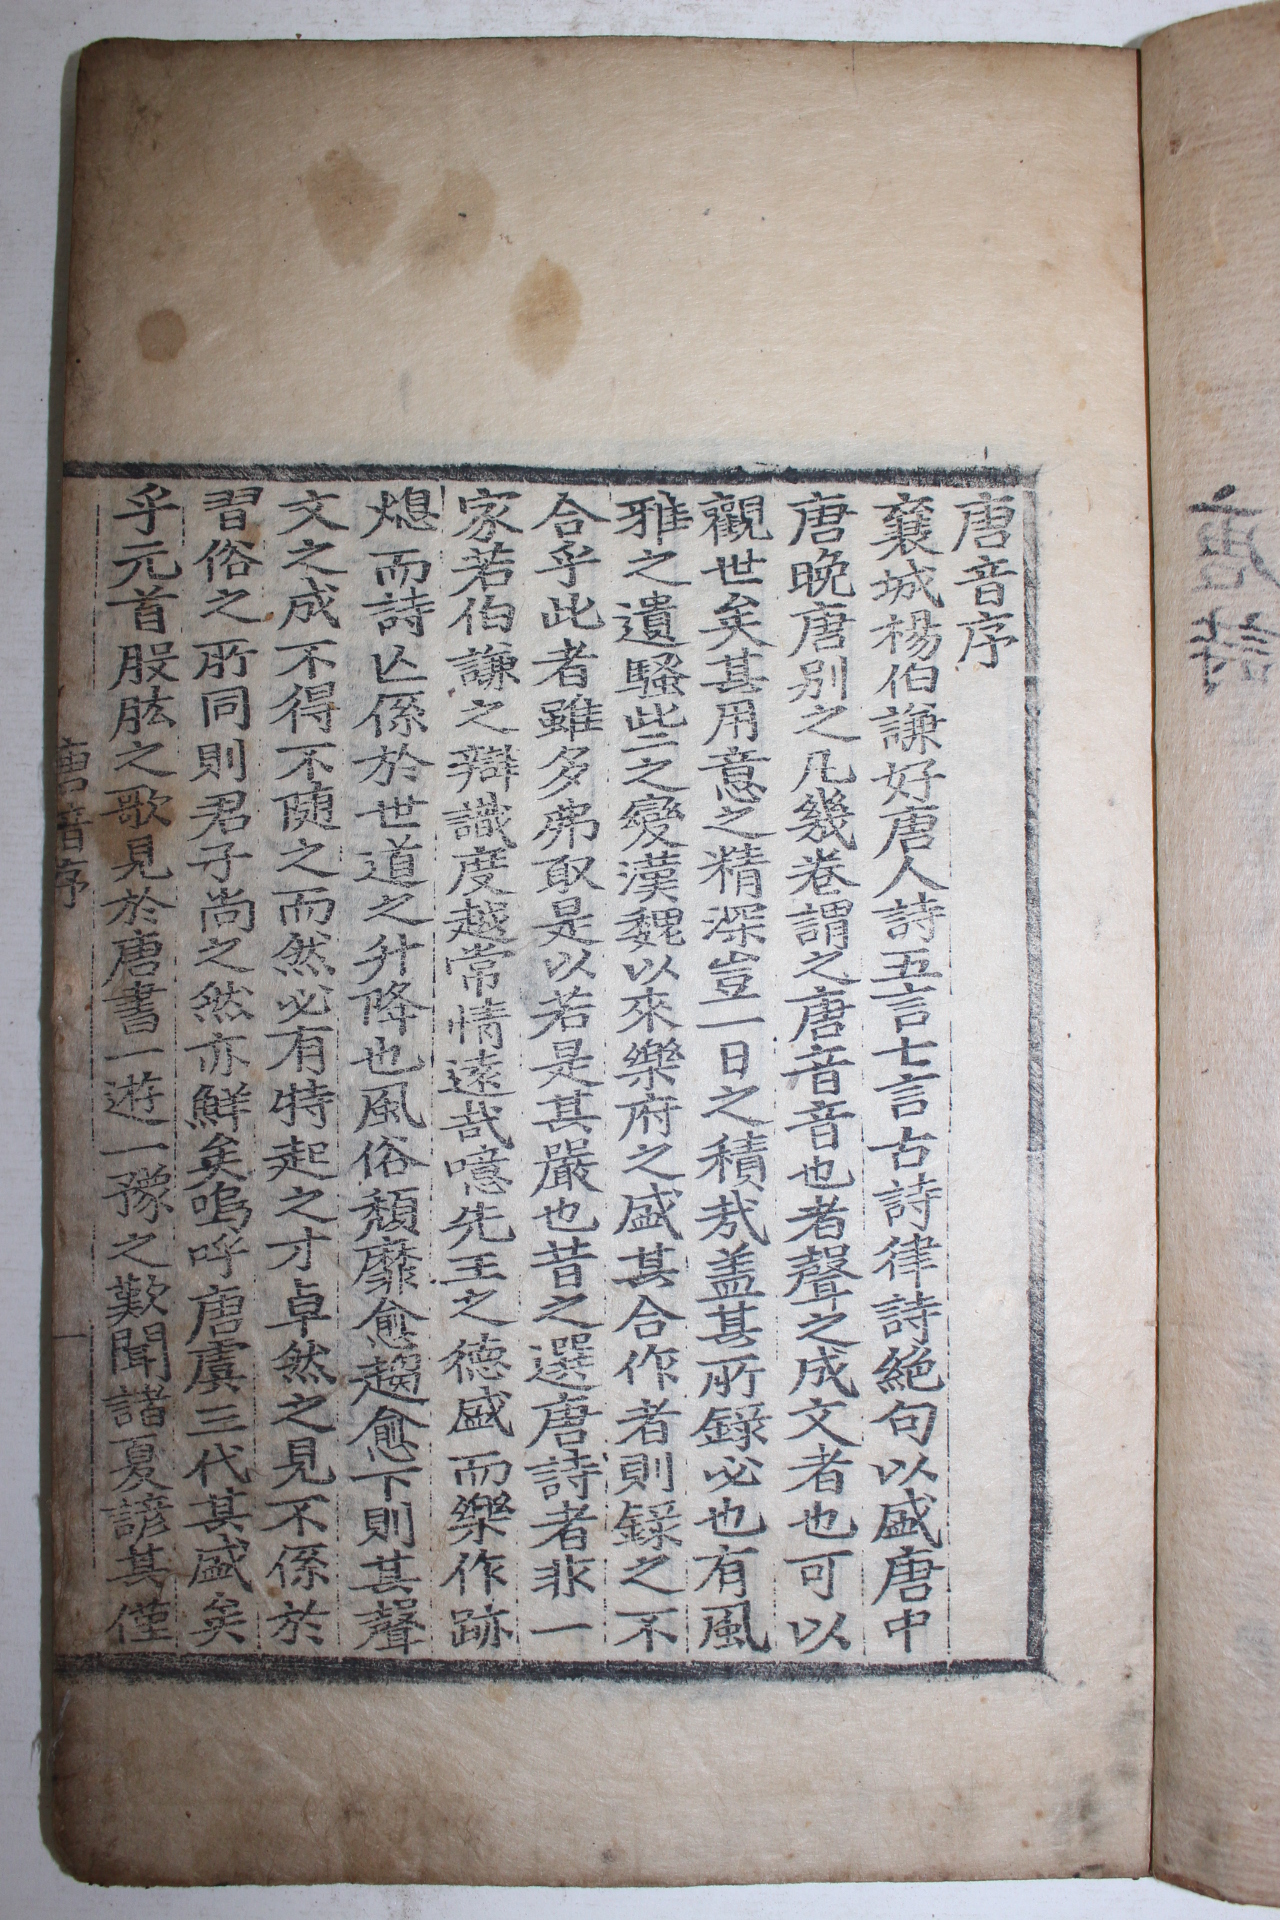 唐音序
襄城楊伯謙好唐人詩五言七言古詩律詩絕句以盛唐中
唐晚唐别之凡幾卷謂之唐音音也者聲之成文者也可以
觀世矣其用意之精深豈一日之積㢤盖其所錄必也有風
雅之遺騷些之變漢魏以來樂府之盛其合作者則錄之不
合乎此者雖多弗取是以若是其嚴也昔之選唐詩者非一
家若伯謙之辯識度越常情遠哉噫先王之德盛而樂作跡
熄而詩亡係於世道之升降也風俗頹靡愈趨愈下則其聲
文之成不得不随之而然必有特起之才卓然之見不係於
習俗之所同則君子尚之然亦鮮矣嗚呼唐虞三代其盛矣
乎元首股肱之歌見於唐書一遊一豫之歎聞諸夏諺其僅
唐音序
一
唐詩